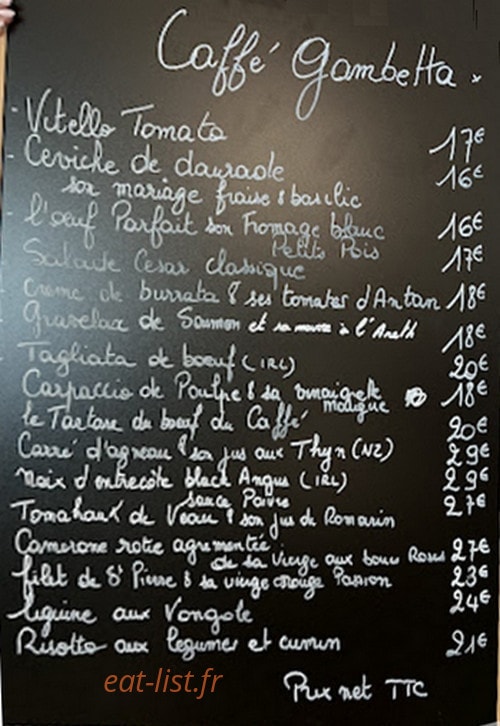 Caffé Gambetta
- Vitello Tomato 17€
- Ceviche de daurade 16€
son mariage fraise & basilic
- l'oeuf Parfait son Fromage blanc 16€
Petits Pois
Salade Cesar classique 17€
- creme de burrata & ses tomates d'Antan 18€
Gravelax de Saumon et sa à l'Aneth 18€
- Tagliata de boeuf (IRL) 20€
Carpaccio de Poulpe & sa vinaigrette 18€
le Tartare du boeuf du Caffé 20€
Carré d'agneau & son jus aux Thyn (NZ) 29€
Noix d'entrecôte black Angus (IRL) 29€
sauce Poivre
Tomahauk de Veau & son jus de Romarin 27€
Camerone rotie agrementée 27€
de sa Vierge aux baies Roses
filet de St Pierre & sa vierge Passion 23€
linguine aux Vongole 24€
Risotto aux legumes et cumin 21€
Prix net TTC
eat-list.fr